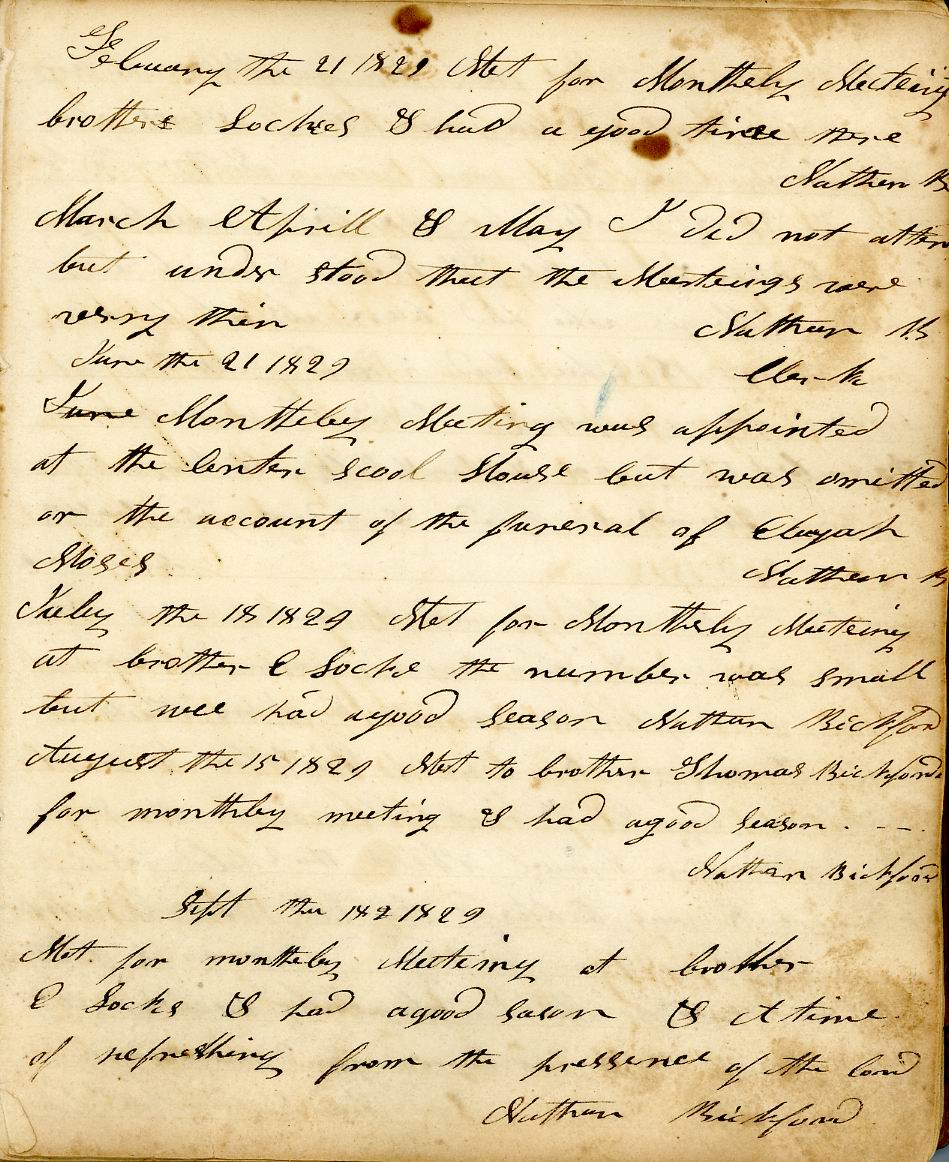 February the 21 1829 Met for Monthely Meeteing
brothers Lockes & had a good time there
Nathen B
March Aprill & May I did not atten
but under stood that the Meeteings were
verry thin Nathan B
June the 21 1829 Clerk
June Montheley Meeting was appointed
at the Center scool House but was omitted
on the account of the funeral of
Moses Nathan B
July the 18 1829 Met for Monthely Meeteing
at brother E Locke the number was small
but wee had agood season Nathan Bickford
August the 15 1829 Met to brother Thomas Bickfords
for monthley meeting & had agood season
Nathan Bickford
Sept the 1829
Met for montheley Meeteing at brother
E Locks & had agood sason & A time
of refreshing from the pressence of the lord
Nathan Bickford